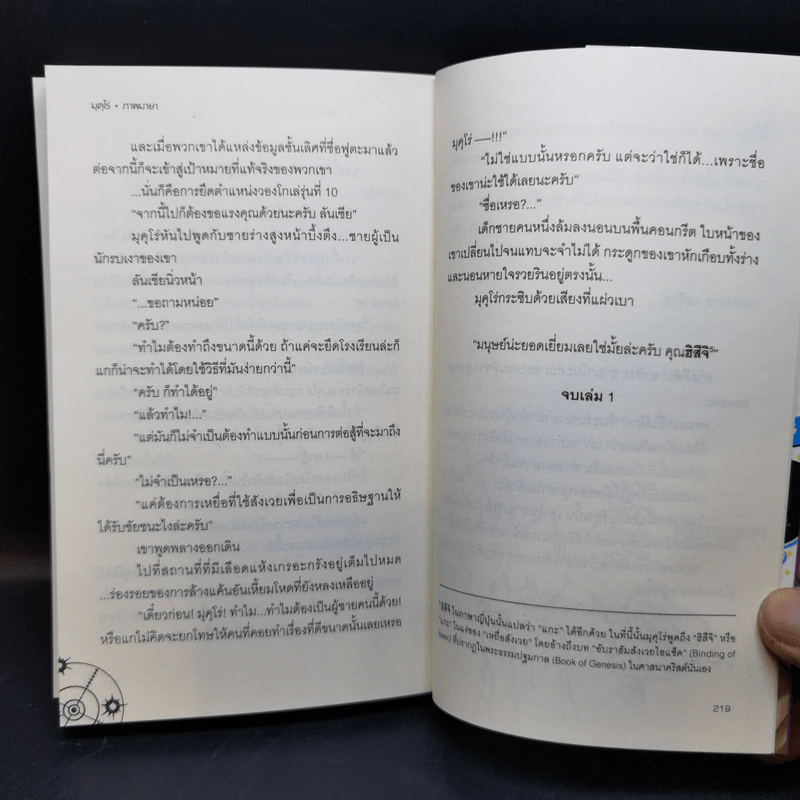 มุคุโร่ • ภาพมายา
และเมื่อพวกเขาได้แหล่งข้อมูลชั้นเลิศที่ชื่อฟูตะมาแล้ว
ต่อจากนี้ก็จะเข้าสู่เป้าหมายที่แท้จริงของพวกเขา
...นั่นก็คือการยึดตำแหน่งวองโกเล่รุ่นที่ 10
“จากนี้ไปก็ต้องขอแรงคุณด้วยนะครับ ลันเซีย”
มุคุโร่หันไปพูดกับชายร่างสูงหน้าบึ้งตึง...ชายผู้เป็น
นักรบเงาของเขา
ลันเซียนิ่วหน้า
“...ขอถามหน่อย”
“ครับ?”
“ทำไมต้องทำถึงขนาดนี้ด้วย ถ้าแค่จะยึดโรงเรียนล่ะก็
แกก็น่าจะทำได้โดยใช้วิธีที่มันง่ายกว่านี้”
“ครับ ก็ทำได้อยู่”
“แล้วทำไม!...”
“แต่มันก็ไม่จำเป็นต้องทำแบบนั้นก่อนการต่อสู้ที่จะมาถึง
นี่ครับ”
“ไม่จำเป็นเหรอ?...”
“แค่ต้องการเหยื่อที่ใช้สังเวยเพื่อเป็นการอธิษฐานให้
ได้รับชัยชนะไงล่ะครับ”
เขาพูดพลางออกเดิน
ไปที่สถานที่ที่มีเลือดแห้งเกรอะกรังอยู่เต็มไปหมด
...ร่องรอยของการล้างแค้นอันเหี้ยมโหดที่ยังหลงเหลืออยู่
“เดี๋ยวก่อน! มุคุโร่! ทำไม...ทำไมต้องเป็นผู้ชายคนนี้ด้วย!
หรือแกไม่คิดจะยกโทษให้คนที่คอยทำเรื่องที่ดีขนาดนั้นเลยเหรอ
มุคุโร่ —!!!”
“ไม่ใช่แบบนั้นหรอกครับ แต่จะว่าใช่ก็ได้...เพราะชื่อ
ของเขาน่ะใช้ได้เลยนะครับ”
“ชื่อเหรอ?...”
เด็กชายคนหนึ่งล้มลงนอนบนพื้นคอนกรีต ใบหน้าของ
เขาเปลี่ยนไปจนแทบจะจำไม่ได้ กระดูกของเขาหักเกือบทั้งร่าง
และนอนหายใจรวยรินอยู่ตรงนั้น...
มุคุโร่กระซิบด้วยเสียงที่แผ่วเบา
“มนุษย์น่ะยอดเยี่ยมเลยใช่มั้ยล่ะครับ คุณฮิสึจิ⁵”
จบเล่ม 1
ฮิสึจิ ในภาษาญี่ปุ่นนั้นแปลว่า “แกะ” ได้อีกด้วย ในที่นี้นั้นมุคุโร่พูดถึง “ฮิสึจิ” หรือ
“แกะ” ในแง่ของ “เหยื่อสังเวย” โดยอ้างถึงบท “อับราฮัมสังเวยไอแซ็ค” (Binding of
Isaac) ที่ปรากฏในพระธรรมปฐมกาล (Book of Genesis) ในศาสนาคริสต์นั่นเอง
219